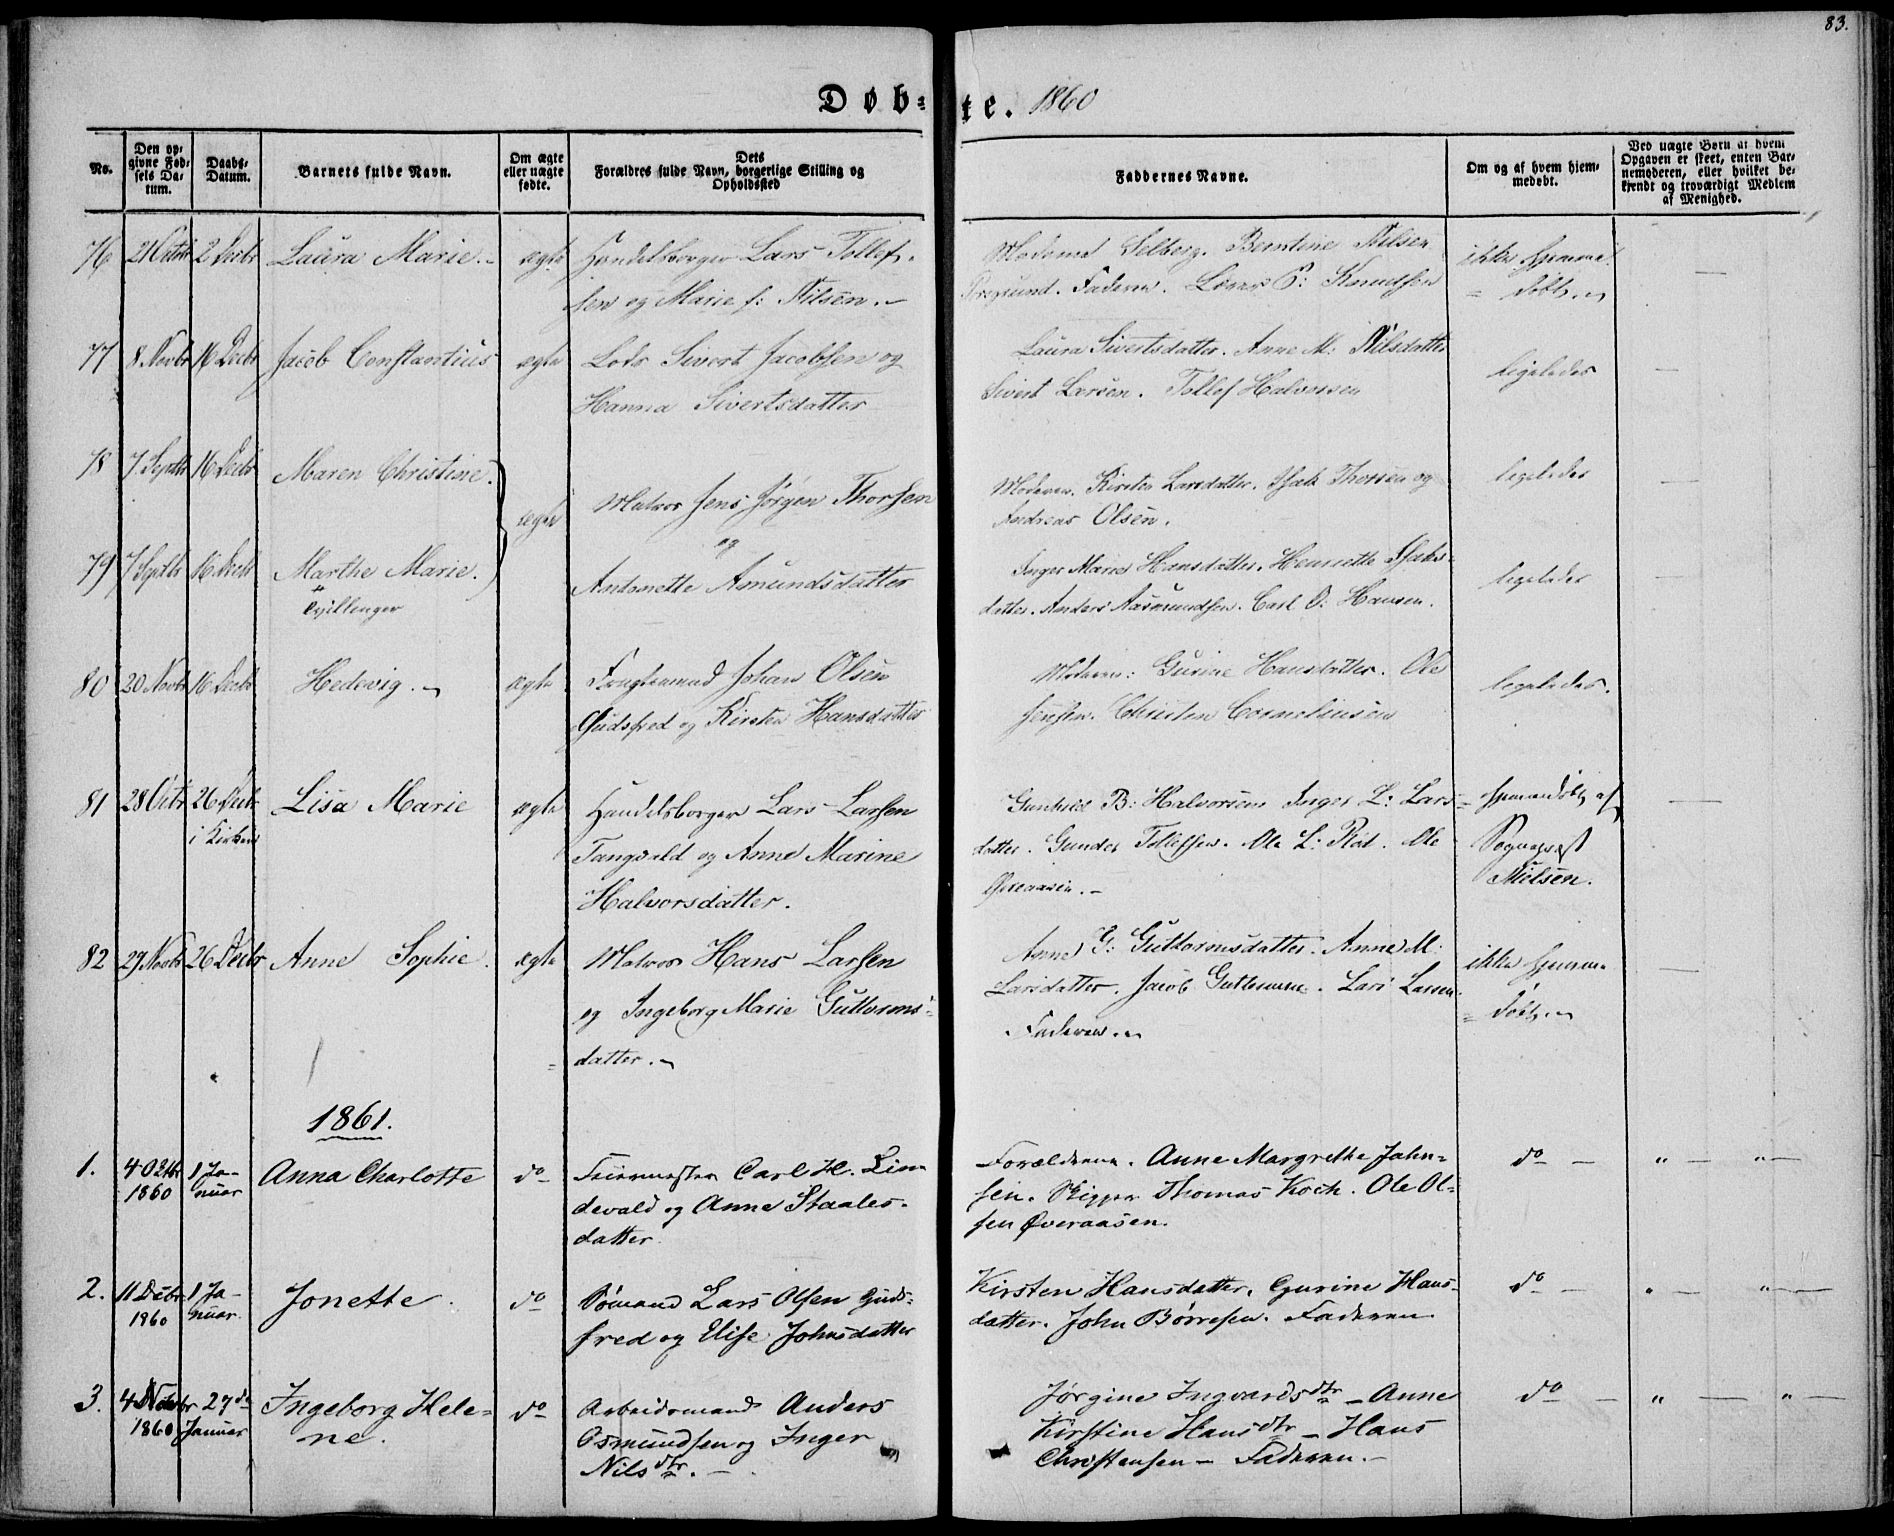 83.
Døb-te. 1860
No.
Den op-
givne Fød-
sels Da-
tum.
Daabs-
Datum.
Barnets fulde Navn.
Om ægte
eller uægte
fødte.
Dets
Forældres fulde Navn, borgerlige Stilling og
Opholdssted
Faddernes Navne.
Om og af hvem hjem-
medøbt.
Ved uægte Børn at hvem
Opgaven er skeet, enten Bar-
nemoderen, eller hvilket be-
kjendt og troværdigt Medlem
af Menighed.
76 21 Octbr 2 Decbr Laura Marie. ægte Handelsborger Lars Tollef-
sen og Marie f: Nilsen.
Madame Selberg. Berntine Nilsen
Faderen. P: Knudsen
ikke hjemme-
døbt.
77 8 Novbr 16 Decbr Jacob Constantius ægte Lods Sivert Jacobsen og
Hanna Sivertsdatter
Laura Sivertsdatter. Anne M: Nilsdatter
Sivert Larsen. Tollef Halvorsen
ligeledes
78 7 Septbr 16 Decbr Maren Christine.
ægte Matros Jens Jørgen Thorsen
og
Moderen. Kirsten Larsdatter. Isak Thorsen og
Andreas Olsen.
ligeledes
79 7 Septbr 16 Decbr Marthe Marie.
Tvillinger
Antonette Amundsdatter
Inger Marie Hansdatter. Henriette Isaks-
datter. Anders Aasmundsen. Carl O: Hansen.
ligeledes
80 20 Novbr 16 Decbr Hedevig. ægte Johan Olsen
Gudsfred og Kirsten Hansdatter
Moderen: Gurine Hansdatter. Ole
Jensen. Christen Corneliussen
ligeledes.
81 28 Octbr 26 Decbr
i Kirken
Lisa Marie ægte Handelsborger Lars Larsen
Tangvald og Anne Marine
Halvorsdatter.
Gunhild B: Halvorsen Inger L: Lars-
datter. Gunder Tollefsen. Ole L: Rød. Ole
Øveraasen.
hjemmedøbt af
Sognepræst
Nielsen.
82 27 Novbr 26 Decbr Anne Sophie. ægte Matros Hans Larsen
og Ingeborg Marie Guttorms-
datter.
Anne G: Guttormsdatter. Anne M.
Larsdatter. Jacob Guttormsen. Lars Larsen
Faderen.
ikke hjemme-
døbt.
1861.
1. 4 Octbr
1860
1 Ja-
nuar
Anna Charlotte do Feiermester Carl H. Lin-
devald og Anne Staales-
datter.
Forældrene. Anne Margrethe John-
sen. Skipper Thomas Koch. Ole Ol-
sen Øveraasen.
do
2. 11 Decbr.
1860
1 Ja-
nuar.
Jonette. do Sømand Lars Olsen Guds-
fred og Elise Johnsdatter
Kirsten Hansdatter, Gurine Hans-
datter. John Børresen. Faderen
do
3. 4 Novbr
1860
27de
Januar
Ingeborg Hele-
ne.
do Arbeidsmand Anders
Osmundsen og Inger
Nilsdtr.
Jørgine Ingvardsdtr - Anne
Kirstine Hansdtr - Hans
Christensen - Faderen.
do